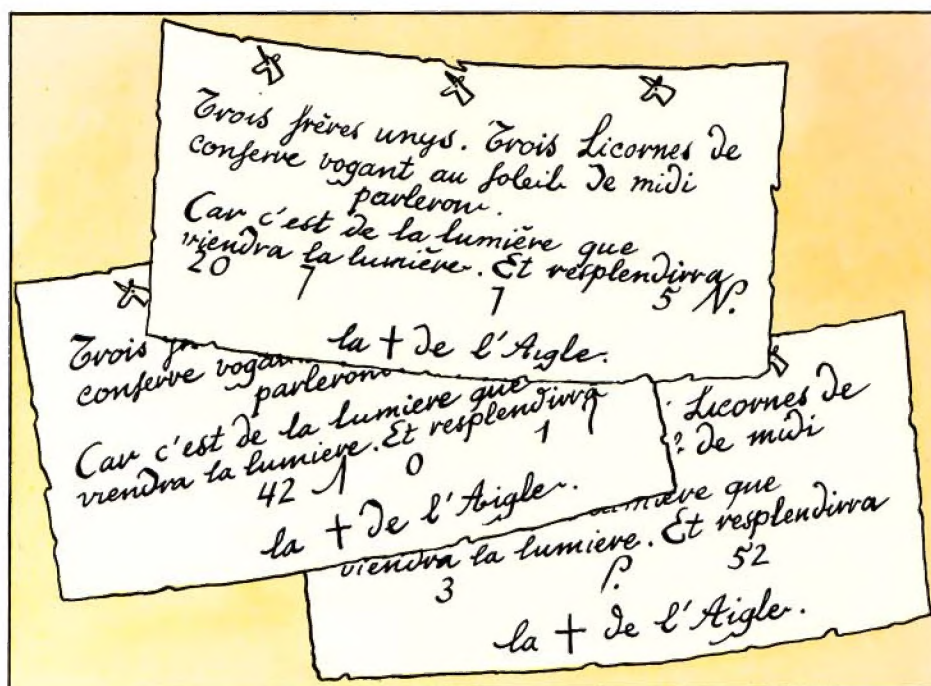 Trois frères unys. Trois Licornes de
conserve vogant au soleil de midi
parleront.
Car c'est de la lumière que
viendra la lumière. Et resplendirra
20 7 7 5 N.
la + de l'Aigle.
Trois
conserve
parleront
Car c'est de la lumiere que
viendra la lumiere. Et resplendirra
42 1 0 1
la + de l'Aigle.
. Licornes de
de midi
que
viendra la lumiere. Et resplendirra
3 52
la + de l'Aigle.